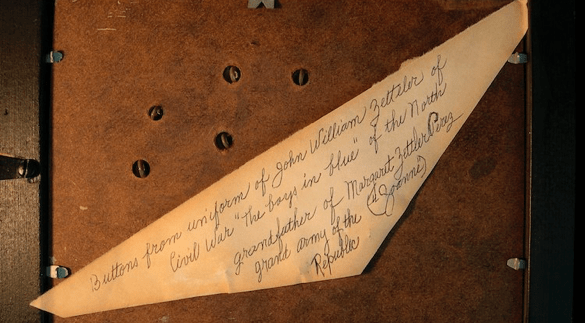 Buttons from uniform of John William Zettler of
Civil War "The boys in blue" of the North
grandfather of Margaret Zettler Perez
(& Joanne)
grand army of the
Republic